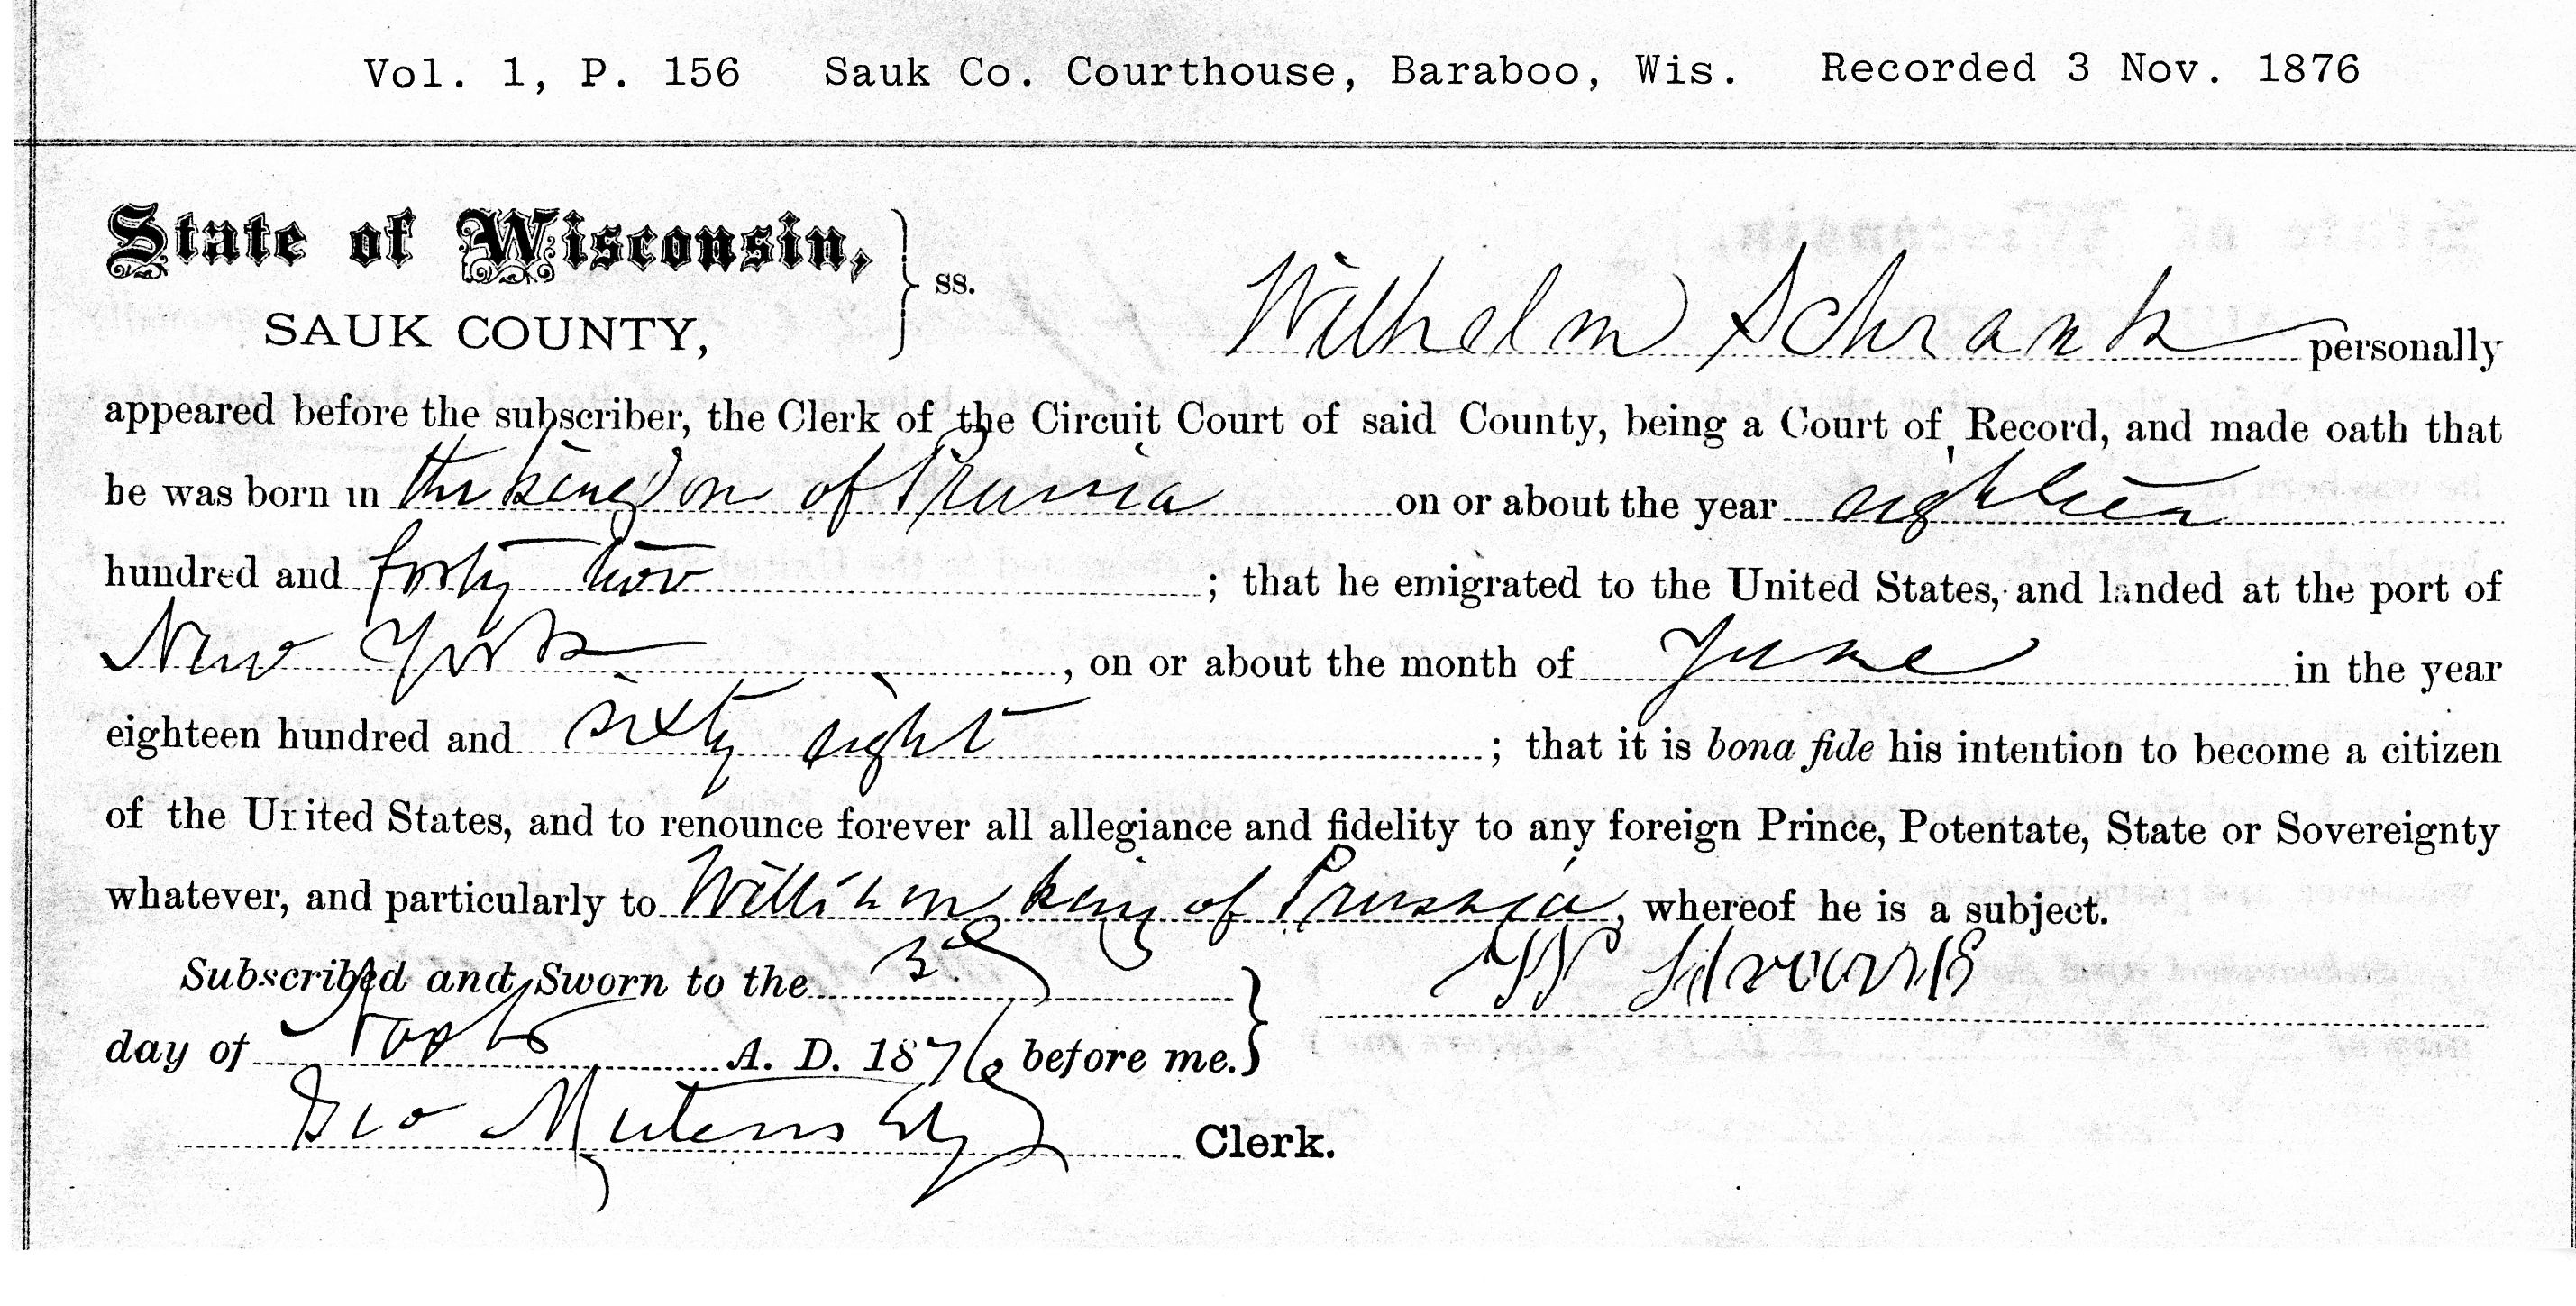 Vol. 1, P. 156 Sauk Co. Courthouse, Baraboo, Wis. Recorded 3 Nov. 1876
State of Wisconsin, } ss.
SAUK COUNTY,
Wilhelm Schrank personally
appeared before the subscriber, the Clerk of the Circuit Court of said County, being a Court of Record, and made oath that
he was born in the kingdom of Prussia on or about the year eighteen
hundred and forty two ; that he emigrated to the United States, and landed at the port of
New York , on or about the month of June in the year
eighteen hundred and sixty eight ; that it is bona fide his intention to become a citizen
of the United States, and to renounce forever all allegiance and fidelity to any foreign Prince, Potentate, State or Sovereignty
whatever, and particularly to William king of Prussia, whereof he is a subject.
Subscribed and Sworn to the 3d } W Schrank
day of A. D. 1876 before me.
Geo Clerk.